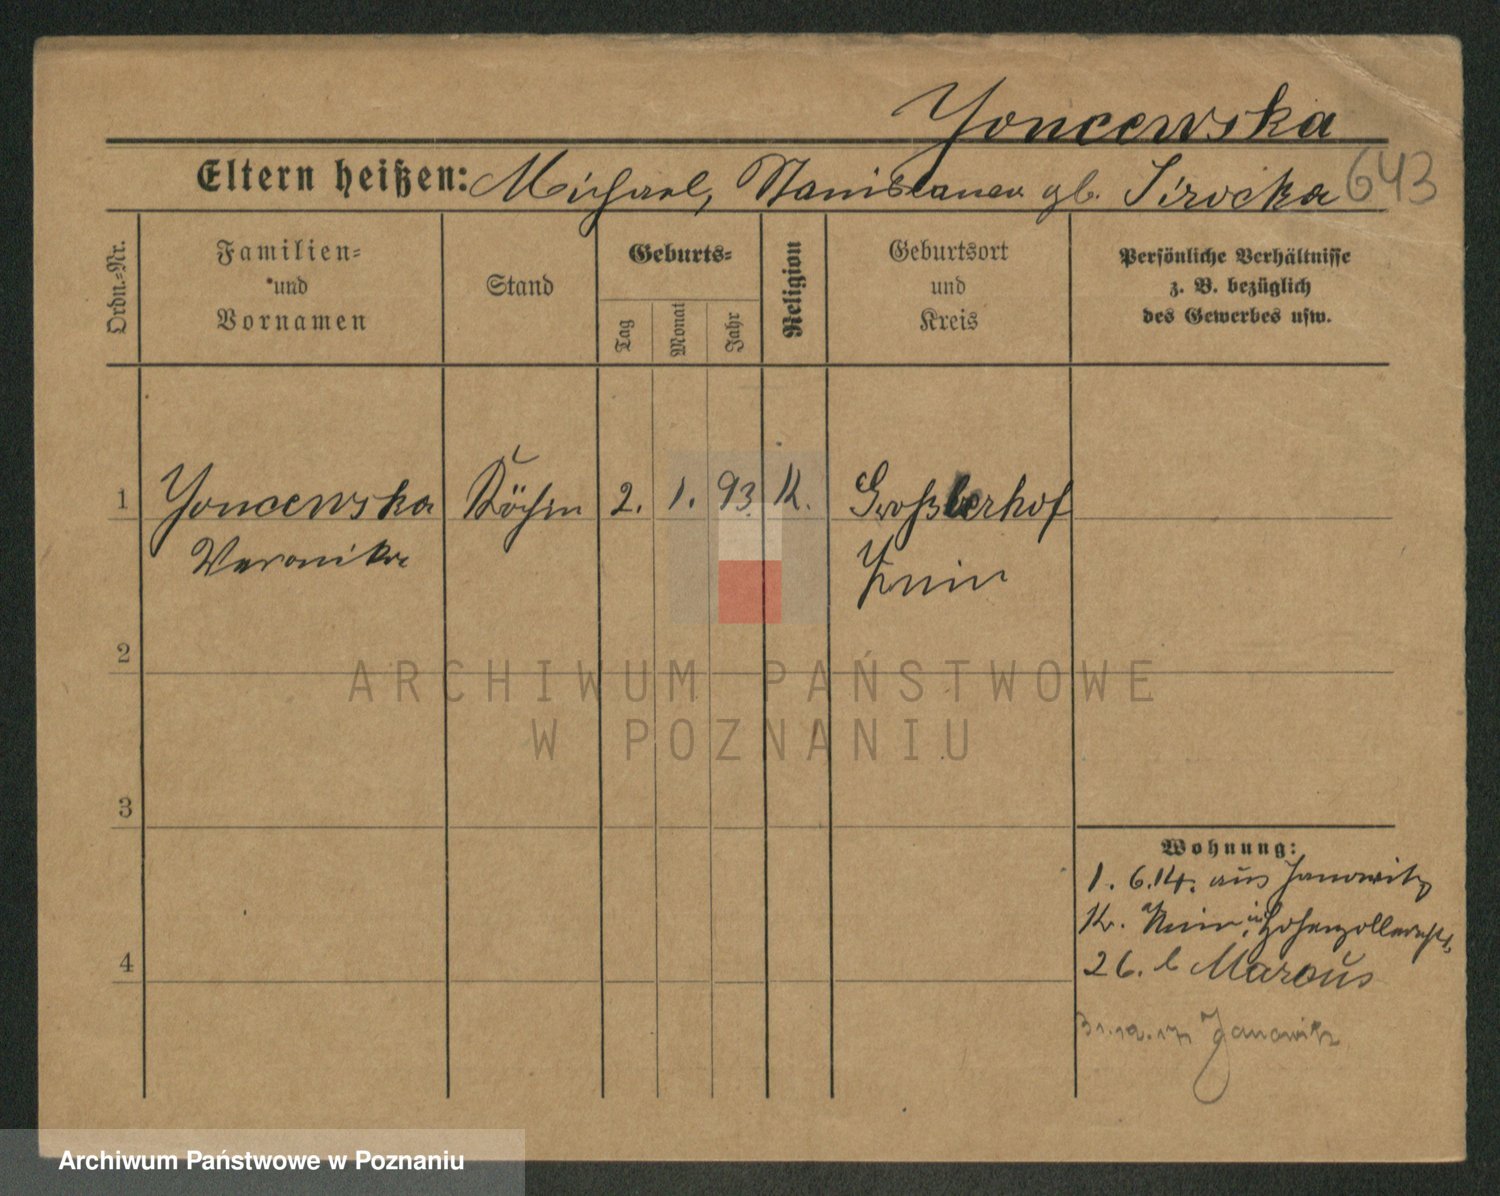 Yoncewska
Eltern heißen: Michael, Stanislawa gb. Sirocka 643
Ordn.-Nr.
Familien-
und
Vornamen
Stand
Geburts-
Tag
Monat
Jahr
Religion
Geburtsort
und
Kreis
Persönliche Verhältnisse
z. B. bezüglich
des Gewerbes usw.
1 Yoncewska Köchin 2. 1. 93. K. Großberhof
Veronika Znin
2
ARCHIWUM PAŃSTWOWE
W POZNANIU
3
Wohnung:
1. 6.14. aus Janowitz
Kr. Znin in
4 26. b Marcus
31.12.17 Janowitz
Archiwum Państwowe w Poznaniu